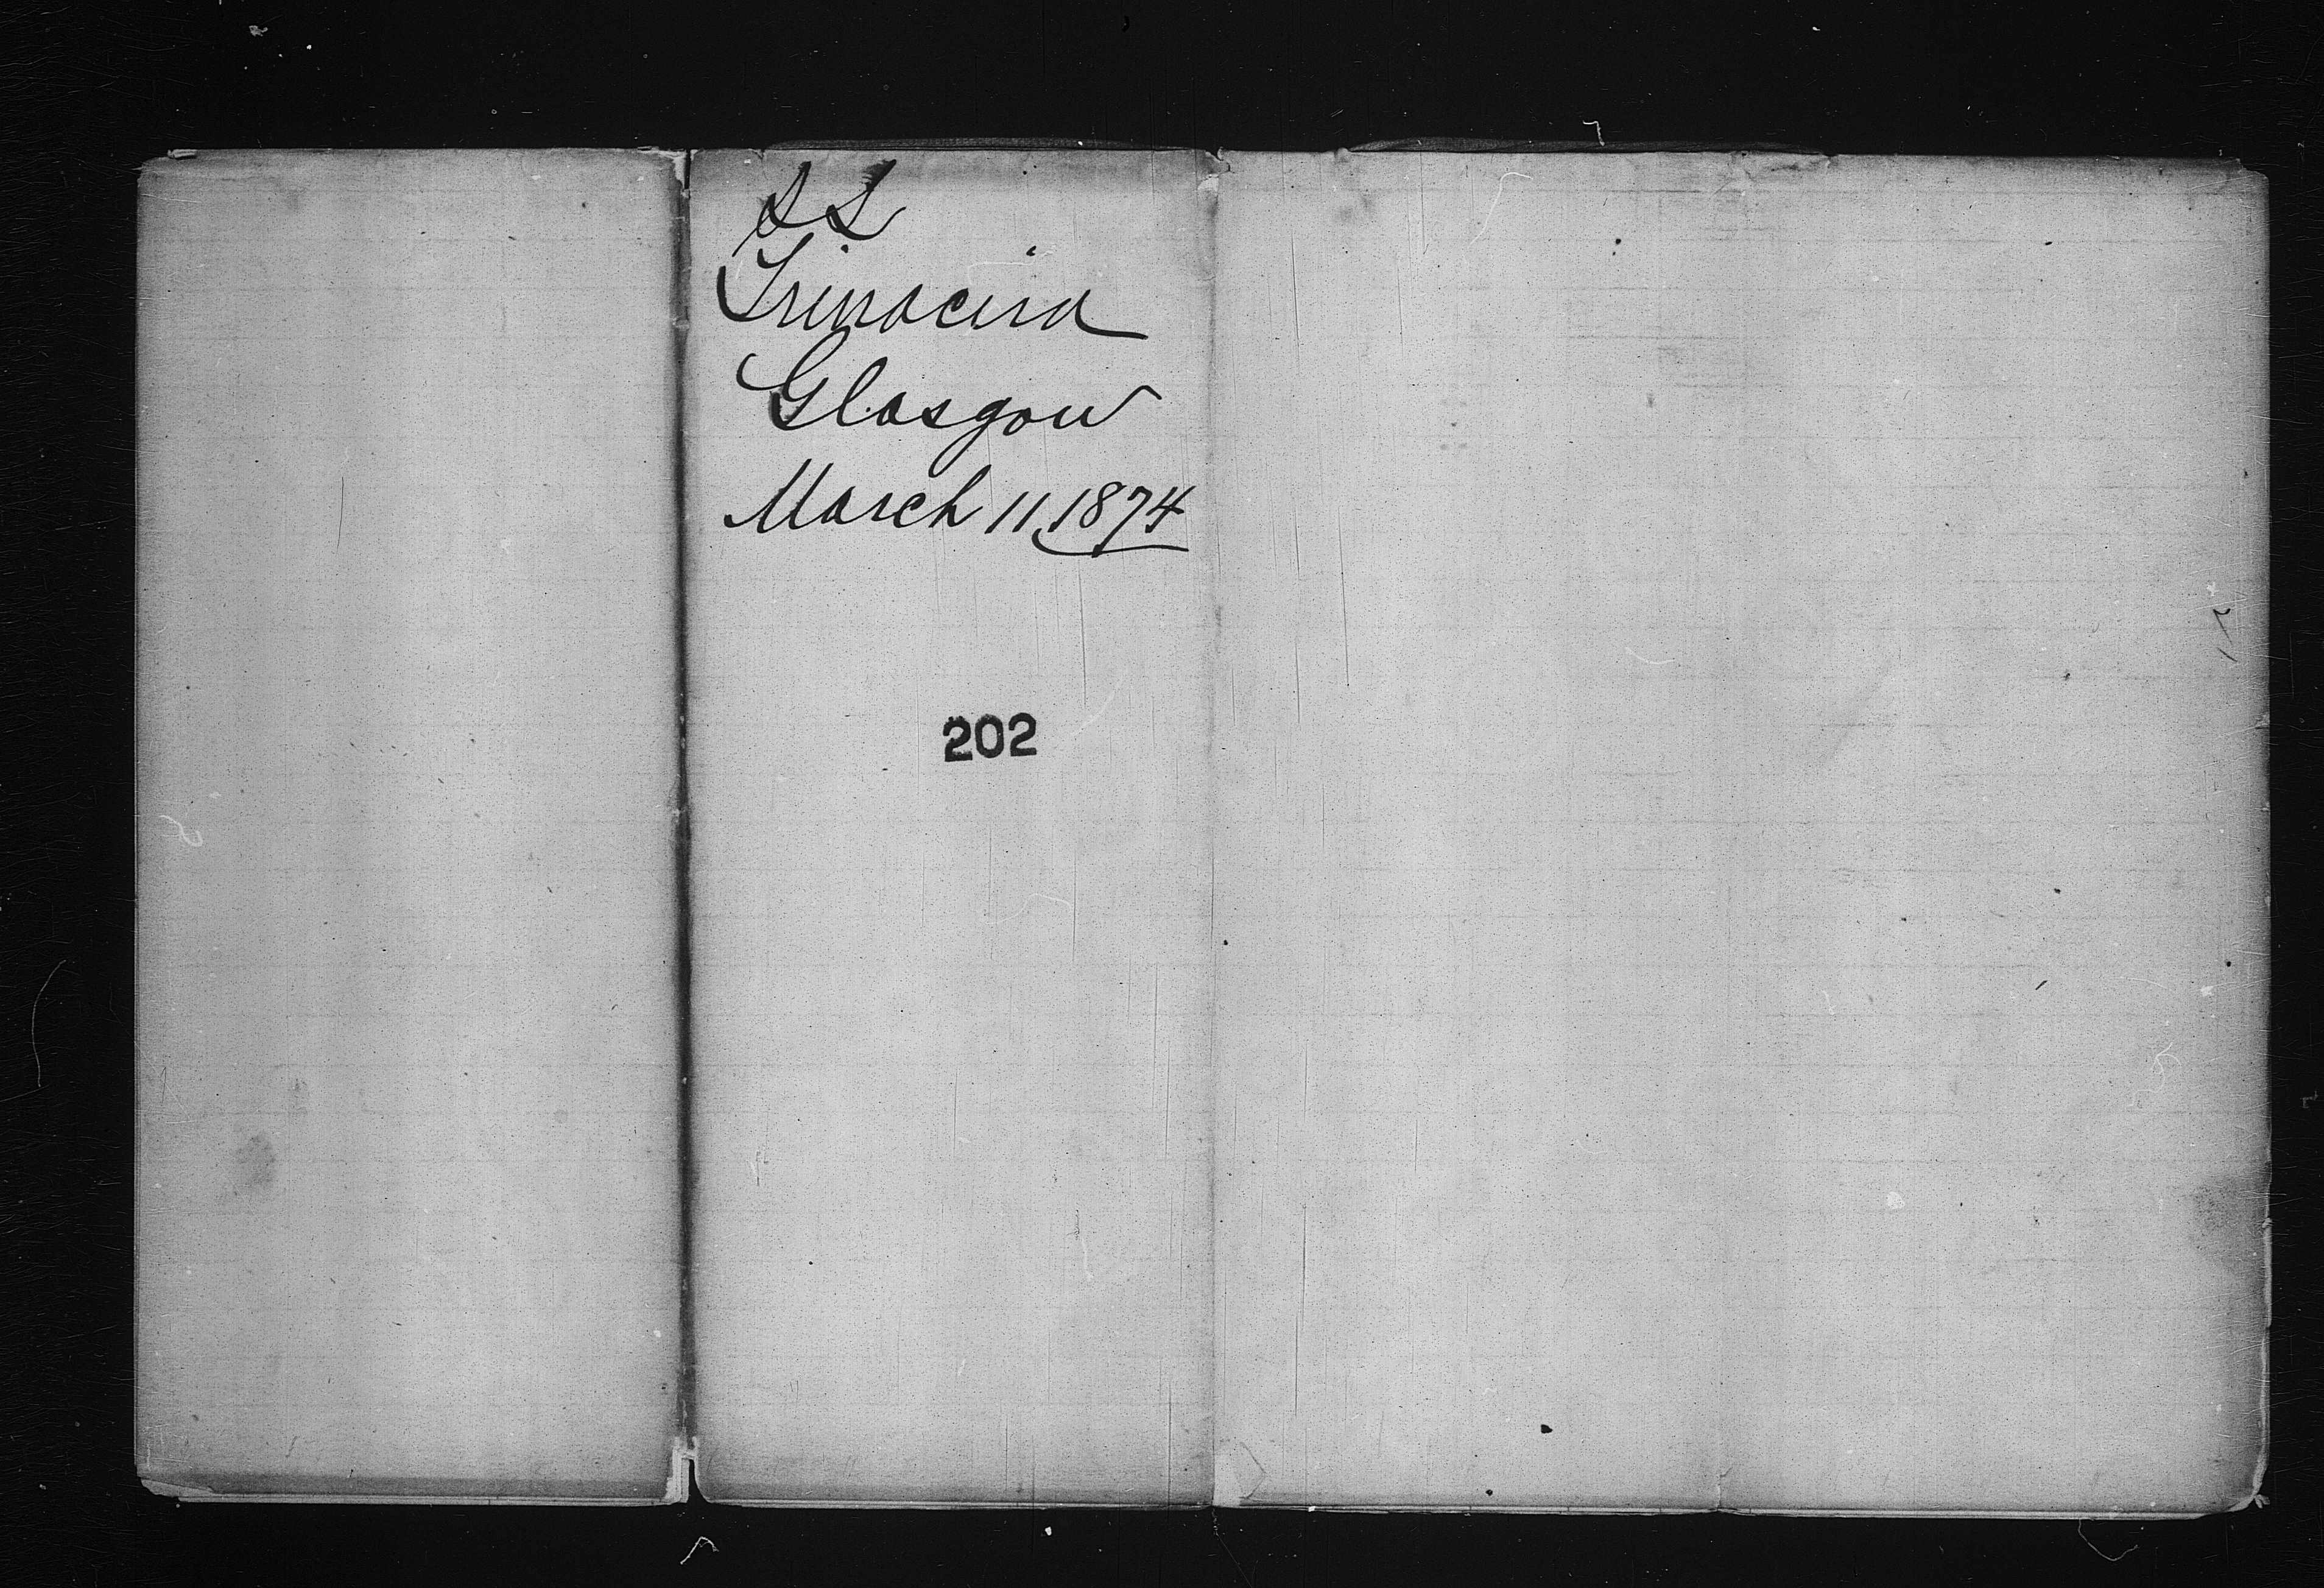 SS
Trinacria
Glasgow
March 11, 1874
202